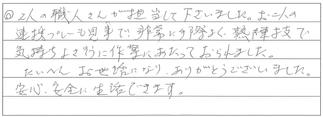 ◎2人の職人さんが担当して下さいました。お二人の
連携プレーも見事で、非常に手際よく、熟練技で
気持ちよさそうに作業にあたっておられました。
たいへんお世話になり、ありがとうございました。
安心、安全に生活できます。